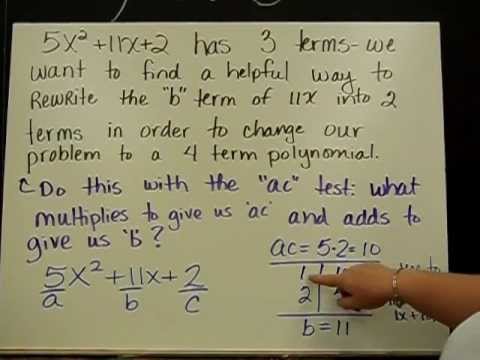 5x² + 11x + 2 has 3 terms - we
want to find a helpful way to
Rewrite the "b" term of 11x into 2
terms in order to change our
problem to a 4 term polynomial.
Do this with the "ac" test: what
multiplies to give us 'ac' and adds to
give us 'b'?
5x² + 11x + 2
a b c
ac = 5·2 = 10
1
2
b = 11